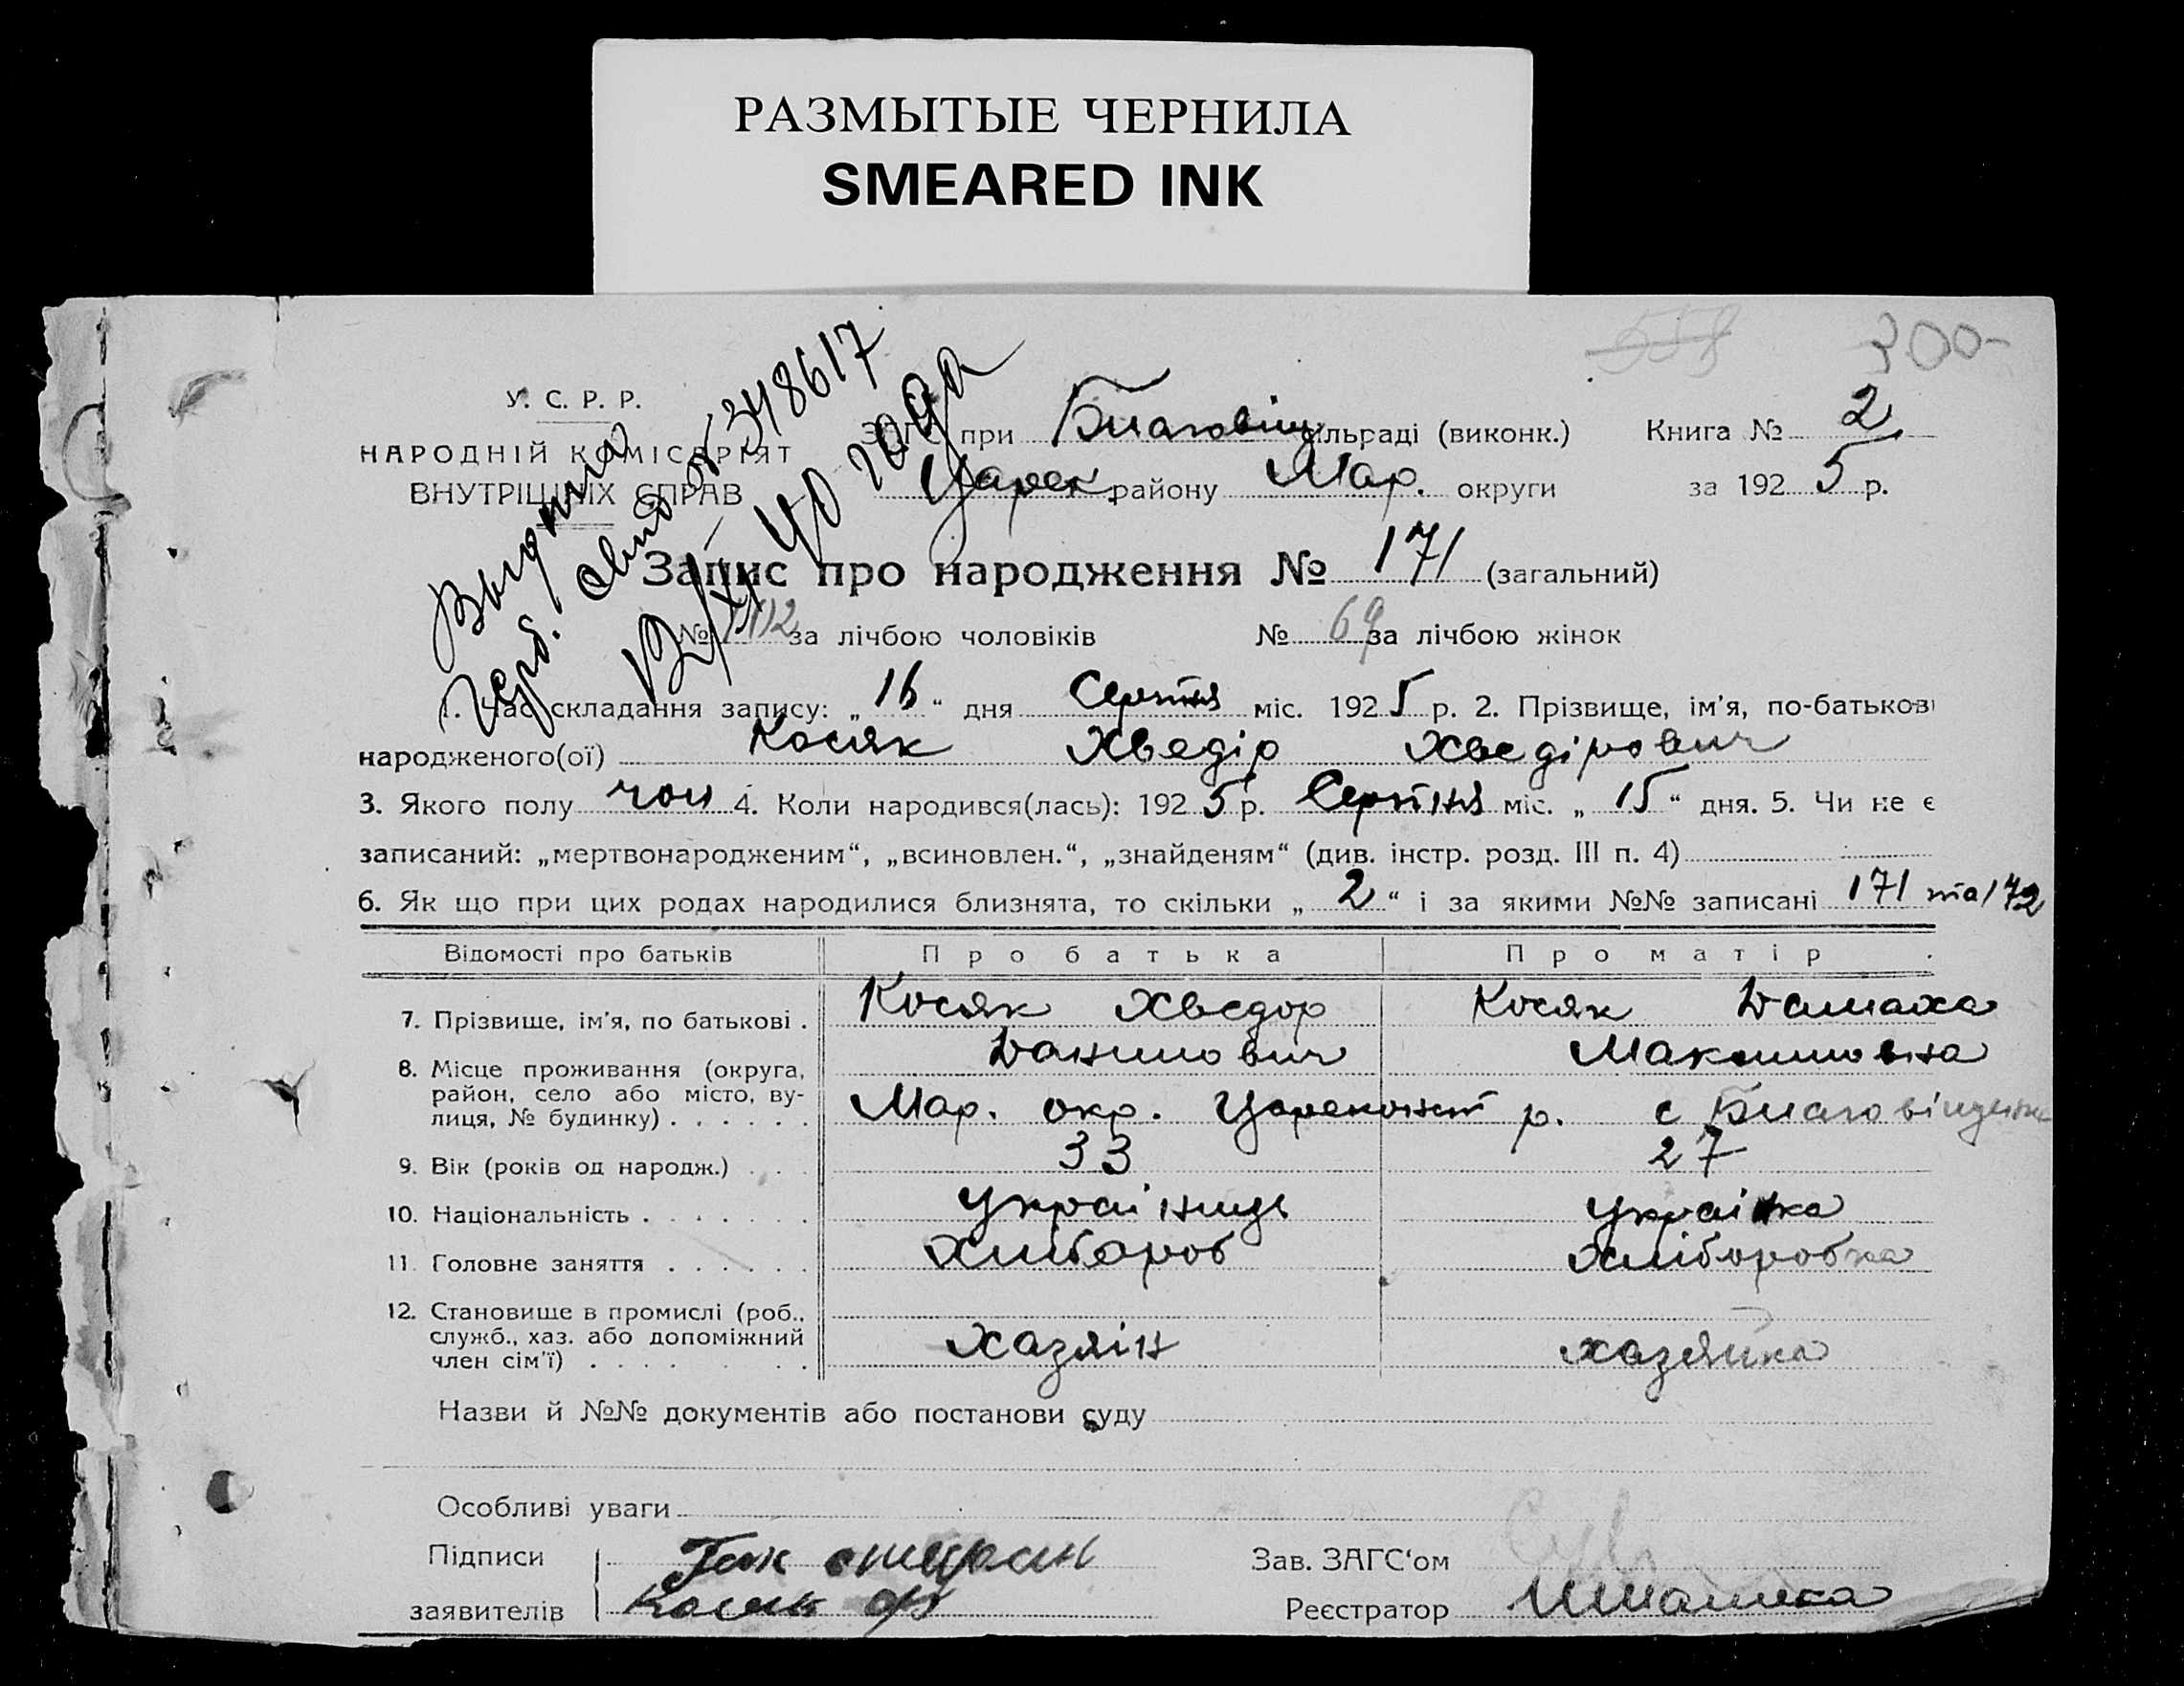 РАЗМЫТЫЕ ЧЕРНИЛА
SMEARED INK
300-
У. С. Р. Р.
НАРОДНІЙ КОМІСАРІЯТ
ВНУТРІШНІХ СПРАВ
при Благовіщ сільраді (виконк.) Книга № 2
Царек. району Мар. округи за 1925 р.
348617
12/XI 40 года
Запис про народження № 171 (загальний)
№ 102 за лічбою чоловіків № 69 за лічбою жінок
1. Час складання запису: „16“ дня Серпня міс. 1925 р. 2. Прізвище, ім’я, по-батькові
народженого(ої) Косяк Хведір Хведірович
3. Якого полу чол 4. Коли народився(лась): 1925 р. Серпня міс. „15“ дня. 5. Чи не є
записаний: „мертвонародженим“, „всиновлен.“, „знайденям“ (див. інстр. розд. III п. 4)
6. Як що при цих родах народилися близнята, то скільки „2“ і за якими №№ записані 171 та 172
Відомості про батьків Про батька Про матір
7. Прізвище, ім’я, по батькові . Косяк Хведор Косяк Домаха
Данилович Максимовна
8. Місце проживання (округа,
район, село або місто, ву-
лиця, № будинку) . . . . . . Мар. окр. Цареконст р. с Благовіщенка
9. Вік (років од народж.) . . . 33 27
10. Національність . . . . . . . Українець Українка
11. Головне заняття . . . . . . Хлібороб Хліборобка
12. Становище в промислі (роб.,
служб., хаз. або допоміжний
член сім’ї) . . . . . . . . хазяін хазяйка
Назви й №№ документів або постанови суду
Особливі уваги
Підписи Зав. ЗАГС‘ом
заявителів Косяк Реєстратор